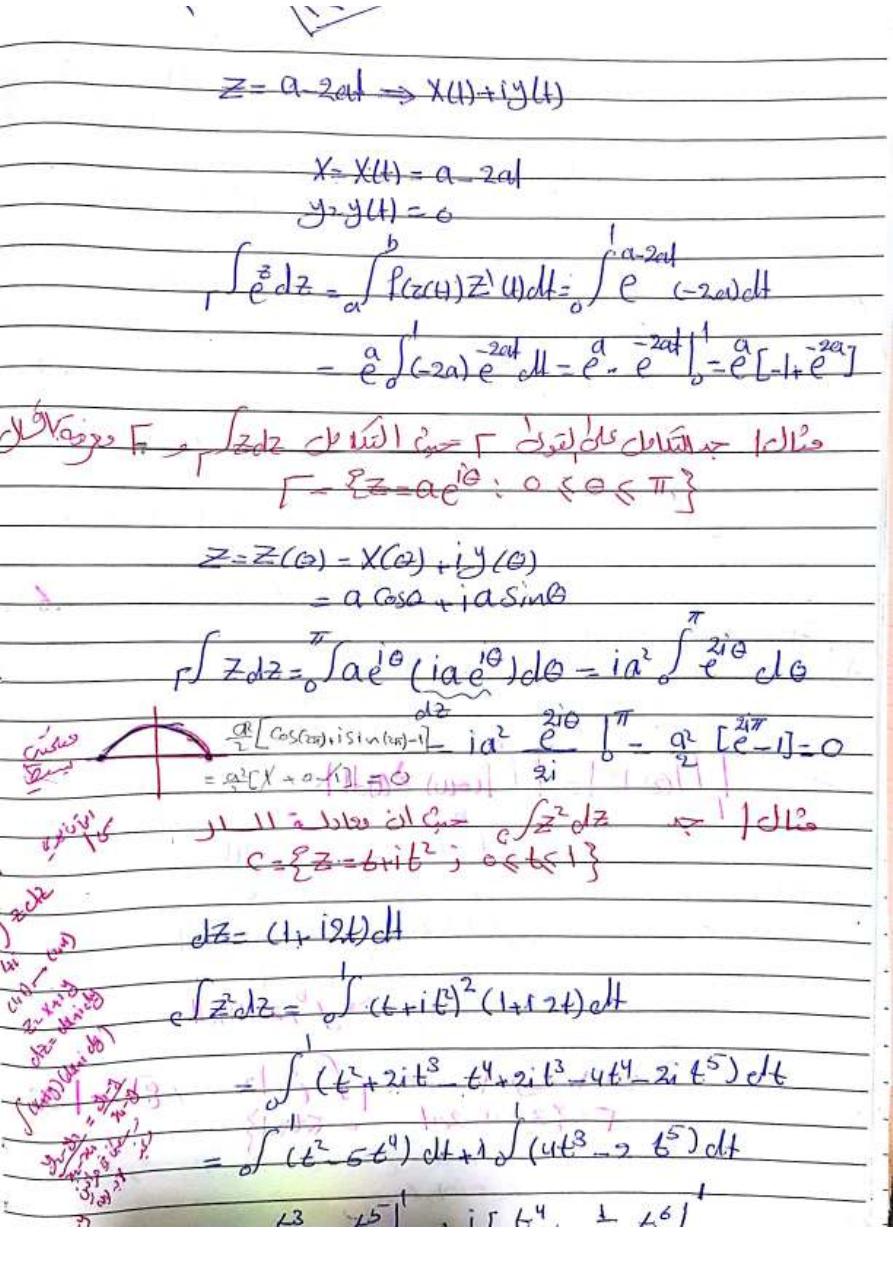 z = a - 2at ⇒ x(t) + iy(t)
x = x(t) = a - 2at
y = y(t) = 0
Γ∫ e^z dz = a∫^b f(z(t)) z'(t) dt = 0∫^1 e^(a-2at) (-2a) dt
= e^a 0∫^1 (-2a) e^(-2at) dt = e^a . e^(-2at) |0^1 = e^a [-1 + e^(-2a)]
مثال | جد التكامل على Γ حيث التكامل Γ∫ z dz و Γ
Γ = {z = ae^(iθ) : 0 ≤ θ ≤ π}
z = z(θ) = x(θ) + iy(θ)
= a cosθ + ia sinθ
Γ∫ z dz = 0∫^π ae^(iθ) (iae^(iθ)) dθ = ia² 0∫^π e^(2iθ) dθ
dz
a²/2 [cos(2π) + i sin(2π) - 1] = ia² e^(2iθ)/2i |0^π = a²/2 [e^(2iπ) - 1] = 0
= a²/2 [1 + 0 - 1] = 0
مثال | جد c∫ z² dz حيث ان معادلة المسار
c = {z = t + it² ; 0 ≤ t ≤ 1}
dz = (1 + i2t) dt
c∫ z² dz = 0∫^1 (t + it²)² (1 + i2t) dt
= 0∫^1 (t² + 2it³ - t⁴ + 2it³ - 4t⁴ - 2it⁵) dt
= 0∫^1 (t² - 5t⁴) dt + i 0∫^1 (4t³ - 2t⁵) dt
∫ z dz
z = x + iy
dz = dx + idy
∫(x+iy)(dx+idy)